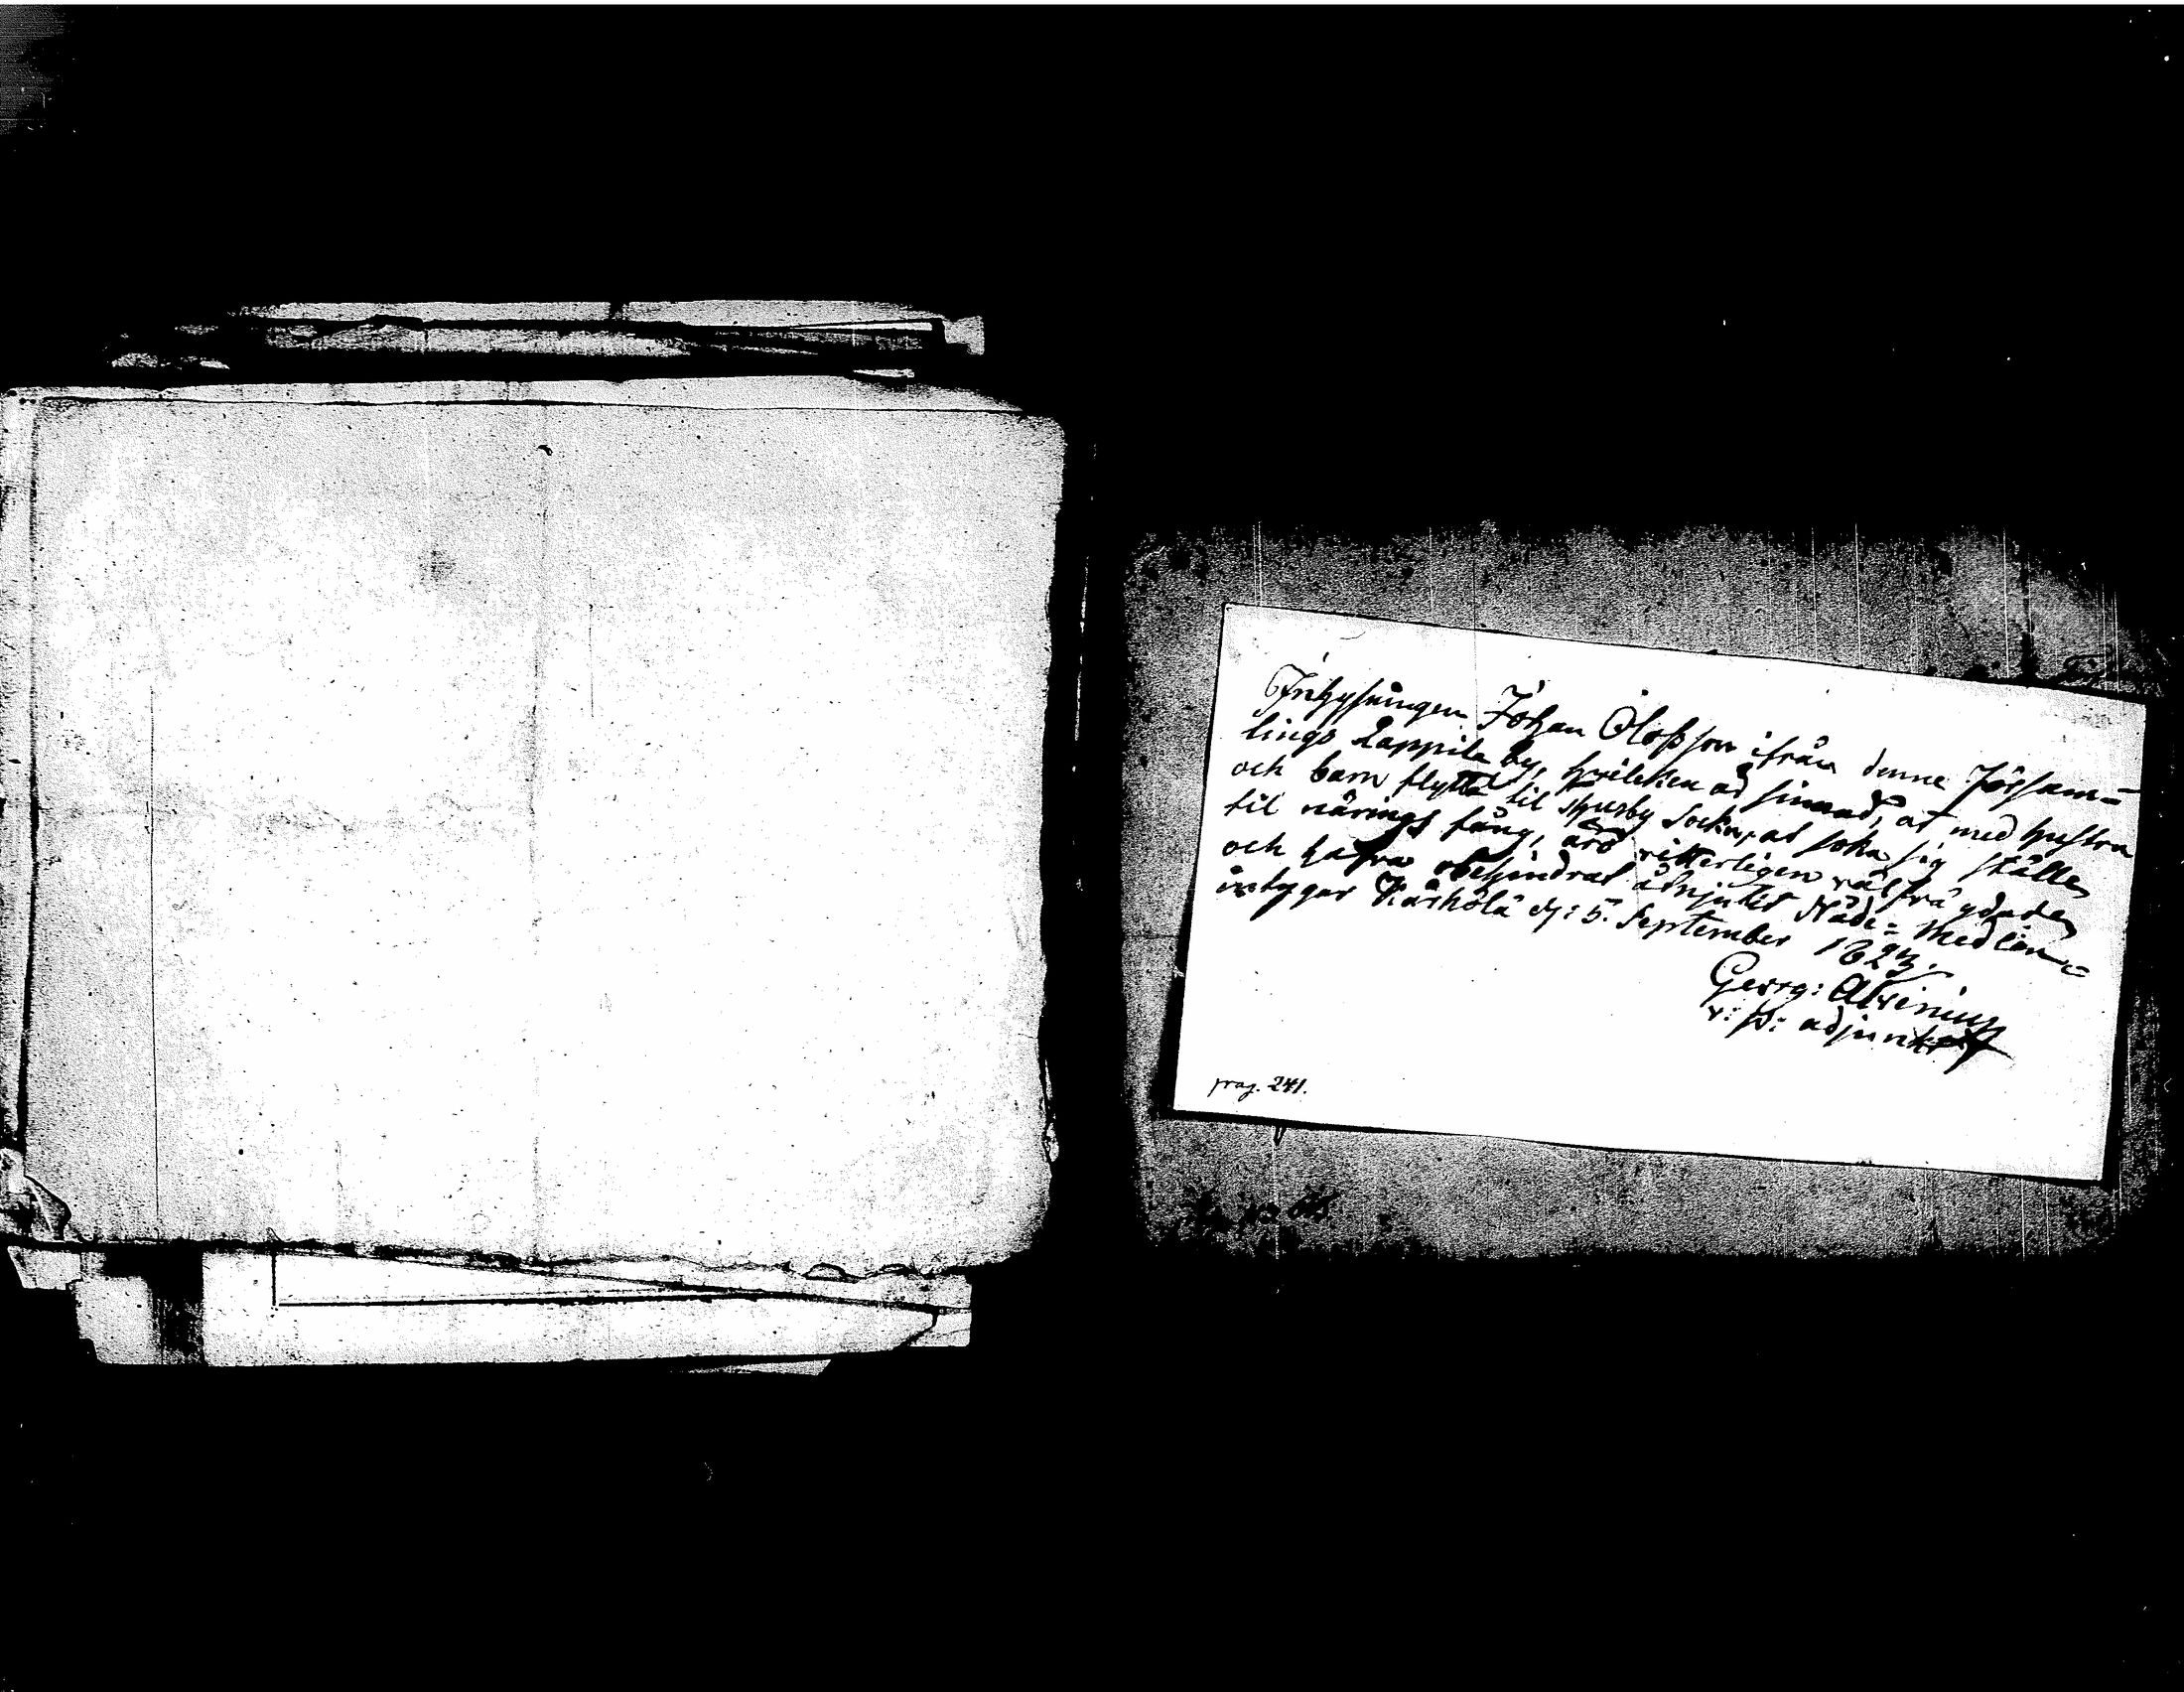 Inhysingen Johan Olofsson ifrån denne Försam˭
lings Lappila by, hvilken ad sinnad, at med hustru
och barn flytta til Husby Sockn, at söka sig ställe
til närings fång, äro ritterligen väl frägdade
och hafva obehindrat åtnjutit Nåde= Medlen=
intygar Kärkölä d: 5. September 1823.
Georg: Alrenius
v: p: adjunkt
pag. 241.